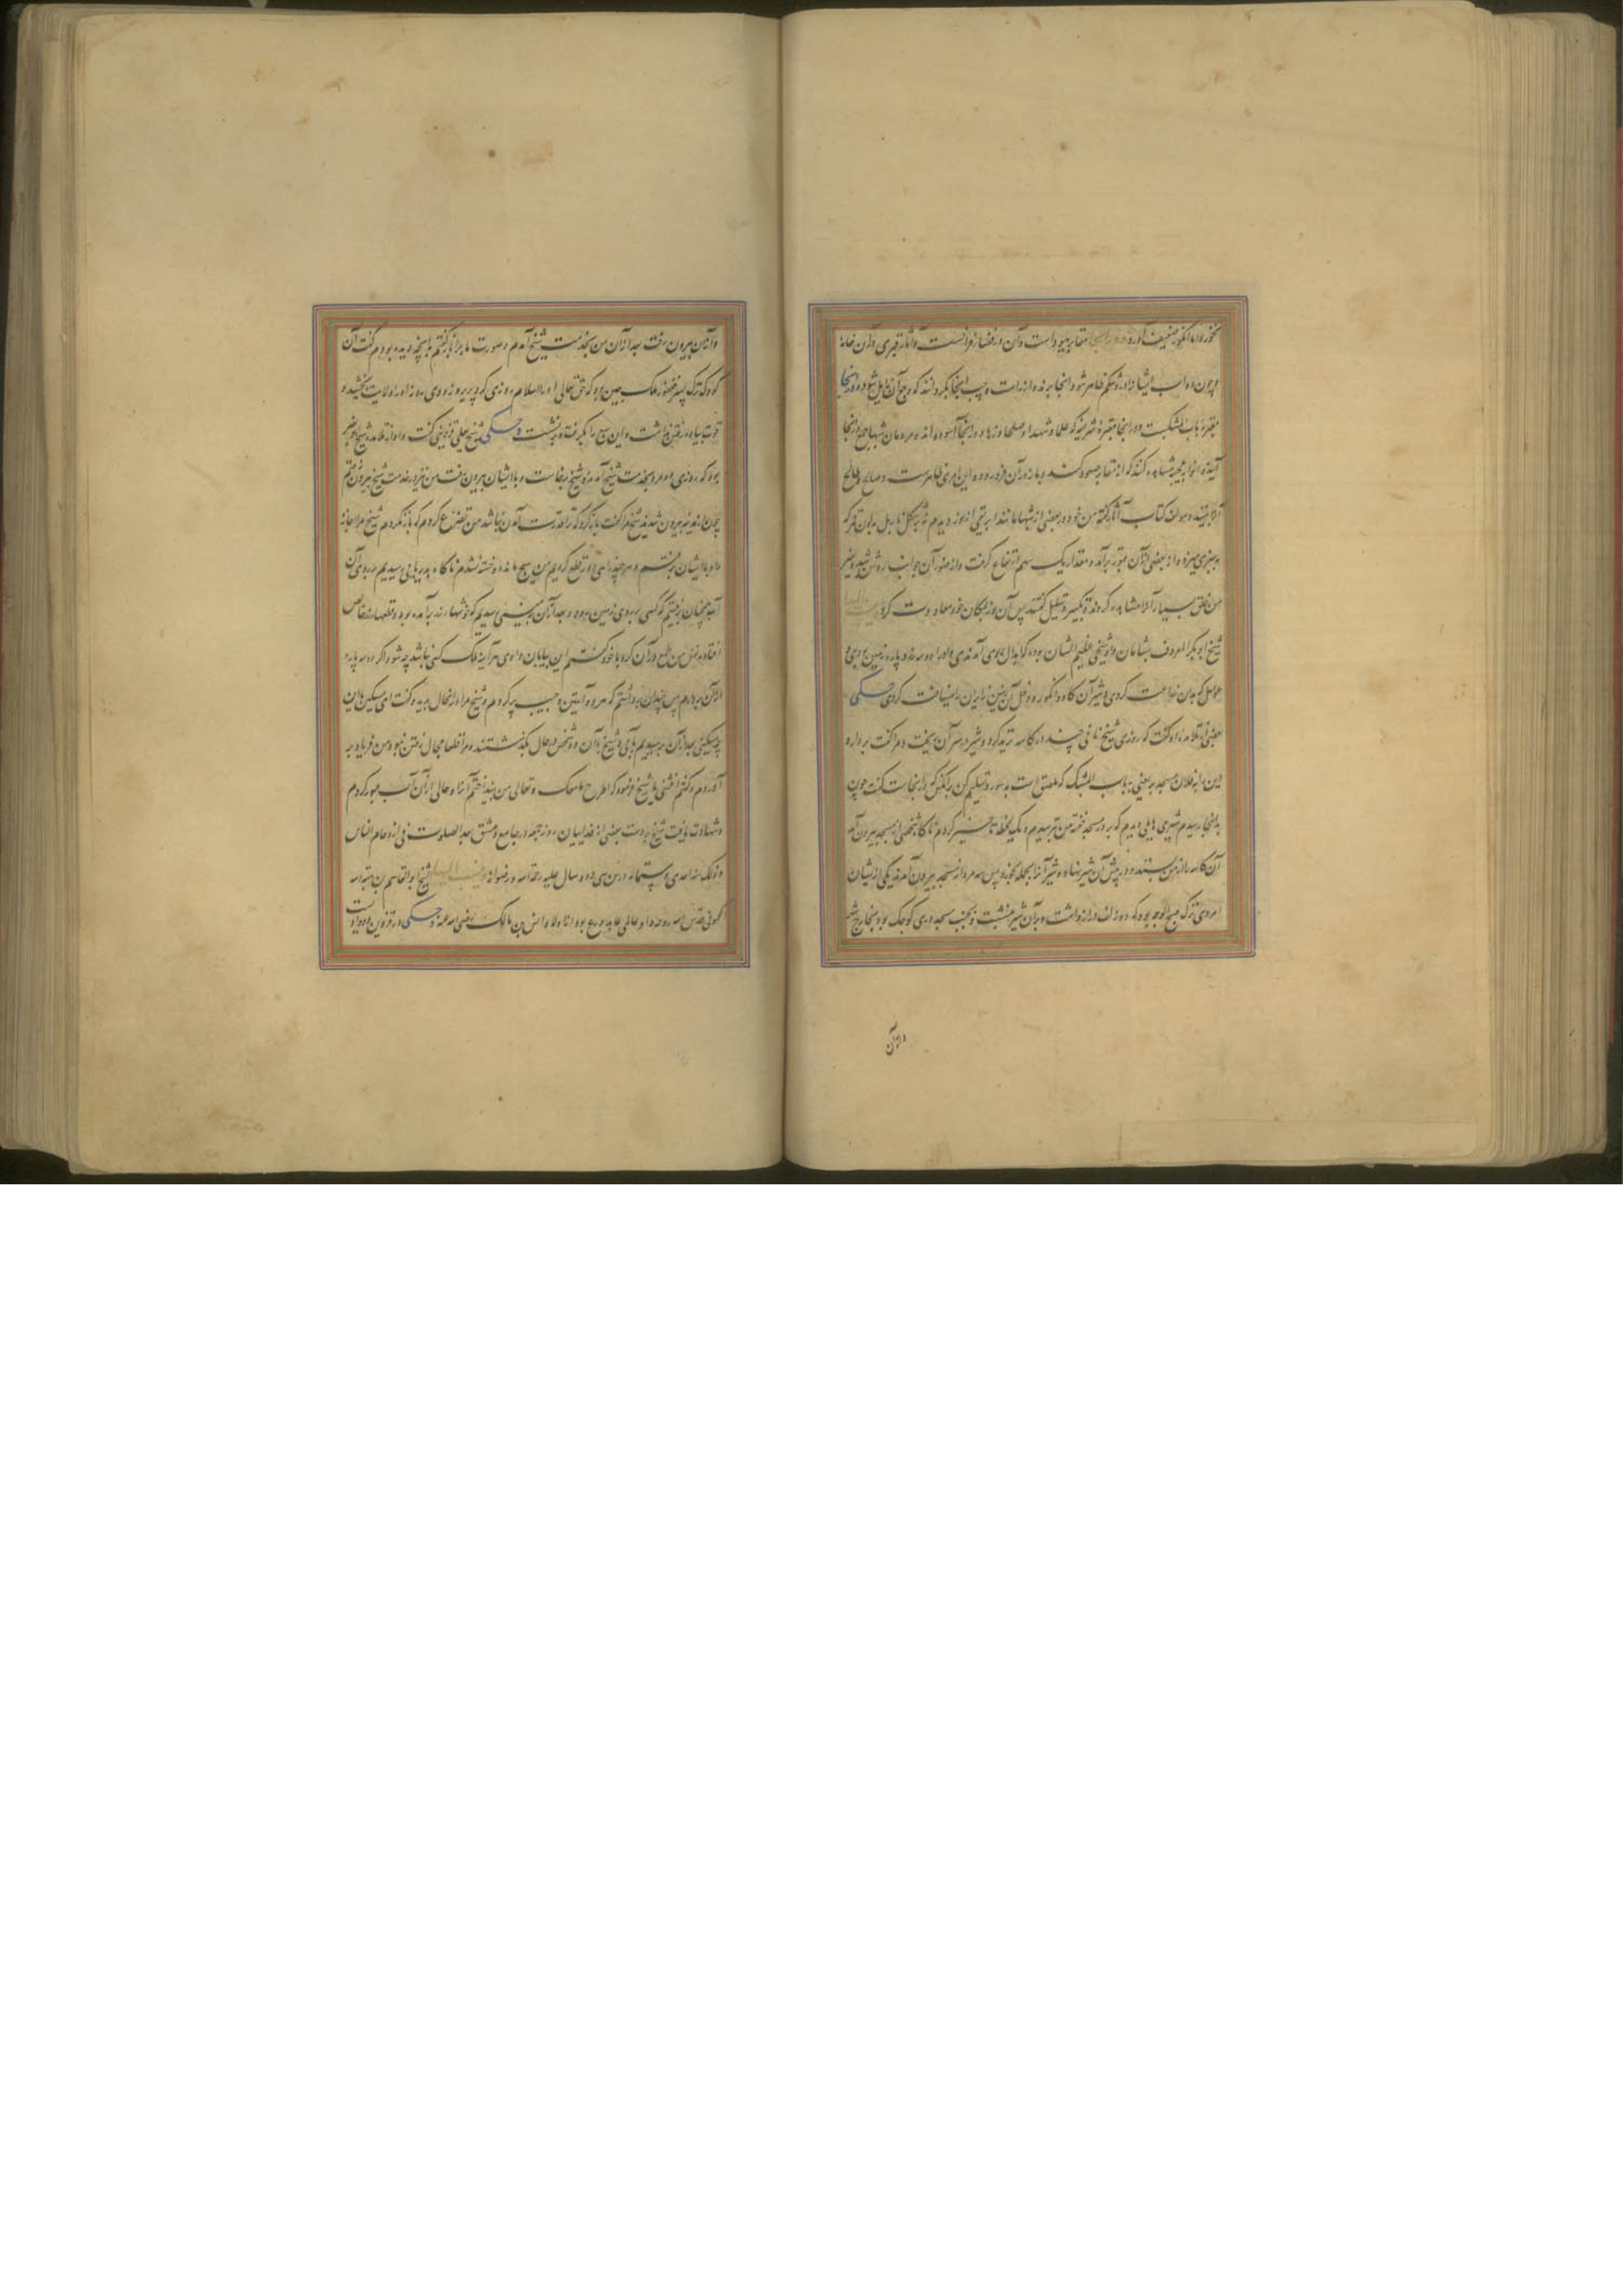 نخورد اما انگور ضعیف آورد و در اینجا مقابر یهود است و آن در فضا از فراخست و آثار قبری و آن خانه
و چون دواب ایشانرا درد شکم ظاهر شود اینجا برند و از راست و چپ اینجا بگردانند که وجع آن زایل شود و در اینجا
مقبره باب المشبک است و در اینجا مقبره شریفه که علما و شهدا و صلحا و زهاد در آنجا آسوده اند و مردمان شبهای جمعه در آنجا
آیند و انوار عجیبه مشاهده کنند که از مقابر صعود کند و باز در آن فرود رود و این امری ظاهرست و صالح و طالح
آنرا بیند و مولف کتاب آثار گفته من خود در بعضی از شبها مانند ابریقی از نور دیدم
و از بعضی از آن قبور برآمد و مقدار یک سهم ارتفاع گرفت و از ضوء آن جوانب روشن شد و غیر
من خلق بسیار آنرا مشاهده کردند و تکبیر و تهلیل گفتند پس آن نور بمکان خود معاودت کرد
شیخ ابوبکر المعروف بشابان و او شیخی عظیم الشان بوده که ابدال بوی آمدندی و او را دو سه رز و پاره زمین بودی و
عوامل که بدان زراعت کردی و شیر آن گاو و انگور و دخل آن زمین زایران را ضیافت کردی حکی
بعضی از تلامذه او گفت که روزی شیخ نانی چند در کاسه ترید کرد و شیر در سر آن بریخت و مرا گفت بردار و
این را به فلان مسجد بر یعنی به باب المشبک که ملصق است بدو سور و تسلیم کن بر آنکس که در اینجاست گفت چون
بدانجا رسیدم شیری هایل دیدم که بر در مسجد خفته من بترسیدم و یک لحظه تاخیر کردم ناگاه شخصی از مسجد بیرون آمد
آن کاسه را از من بستد و در پیش آن شیر نهاد و شیر آنرا بجمله بخورد پس سه مرد از مسجد بیرون آمدند یکی از ایشان
امردی ترک صبیح الوجه بود که دو زلف دراز داشت و بر آن شیر بنشست و بجنب مسجد دری کوچک بود بخارج شهر
و از آن
و از آن بیرون رفت بعد از آن من بخدمت شیخ آمدم و صورت ماجرا باز گفتم با آنچه دیده بودم گفت آن
کودک ترک پسر فغفور ملک چین بود که حق تعالی او را اسلام روزی کرد پریروز و دی روز او را ولایت بخشید و
قوت پیاده رفتن نداشت و این سبع را بگرفت و برنشست و حکی شیخ علی قزوینی گفت و او از تلامذه شیخ ابوبکر
بود که روزی دو مرد بخدمت شیخ آمدند و شیخ برخاست و با ایشان بیرون رفت من نیز در خدمت شیخ بیرون رفتم
چون از مدینه بیرون شدند شیخ مرا گفت بازگرد که ترا قدرت آمدن نباشد من تضرع کردم که باز نگردم شیخ مرا اجازه
داد با ایشان برفتم و هر چند راهی دور قطع کردیم من هیچ مانده و خسته نشدم ناگاه بدریایی رسیدیم بر روی آن
آب همچنان رفتیم که کسی بر روی زمین رود و بعد از آن بزمینی رسیدیم که خوشهای زر برآمده بود و قطعهای زر خالص
افتاده نفس من طمع در آن کرد با خود گفتم این بیابان و وادی هرآینه ملک کسی نباشد چه شود اگر دو سه پاره
از آن بردارم پس چندان برداشتم که هر دو آستین و جیب پر کردم و شیخ مرا در آنحال بدید و گفت ای مسکین با این
چه میکنی بعد از آن برسیدیم بآبی و شیخ با آن دو شخص در حال بگذشتند و مرا قطعا مجال رفتن نبود من فریاد بر
آوردم و گفتم اغثنی یا شیخ فرمود که اطرح ما معک و تعال من بینداختم آنرا و حالی از آن آب عبور کردم
و شهادت یافت شیخ بر دست بعضی از فداییان روز جمعه در جامع دمشق بعد الصلوت فی ازدحام الناس
و ذلک سنه احدی و ستمائه و در سن سی و ده سال علیه رحمة الله و رضوانه و ینسب الیها شیخ ابوالقاسم بن هبة الله
کمونی قدس الله روحه و او عالمی عابد و ورع بود از اولاد انس بن مالک رضی الله عنه و حکی در قزوین